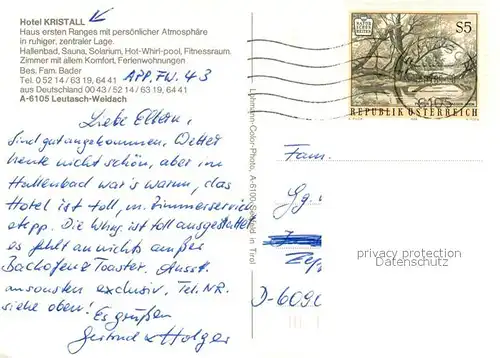 Hotel KRISTALL
Haus ersten Ranges mit persönlicher Atmosphäre
in ruhiger, zentraler Lage.
Hallenbad, Sauna, Solarium, Hot-Whirl-pool, Fitnessraum.
Zimmer mit allem Komfort, Ferienwohnungen
Bes. Fam. Bader
Tel. 0 52 14 / 63 19, 64 41
aus Deutschland 00 43 / 52 14 / 63 19, 64 41
A-6105 Leutasch-Weidach
APP. FW. 43
Liebe Eltern,
sind gut angekommen. Wetter
heute nicht schön, aber im
Hallenbad war's warm, das
Hotel ist toll, m. Zimmerservice
etc pp. Die Whng. ist toll ausgestattet
es fehlt an nichts außer
Backofen & Toaster. Ausst.
ansonsten exclusiv. Tel. NR.
siehe oben!
Es grüßen
Gertrud & Holger
Lohmann-Color-Photo, A-6100 Seefeld in Tirol
S5
NATUR
REPUBLIK ÖSTERREICH
6105
Fam.
D-6090
privacy protection
Datenschutz